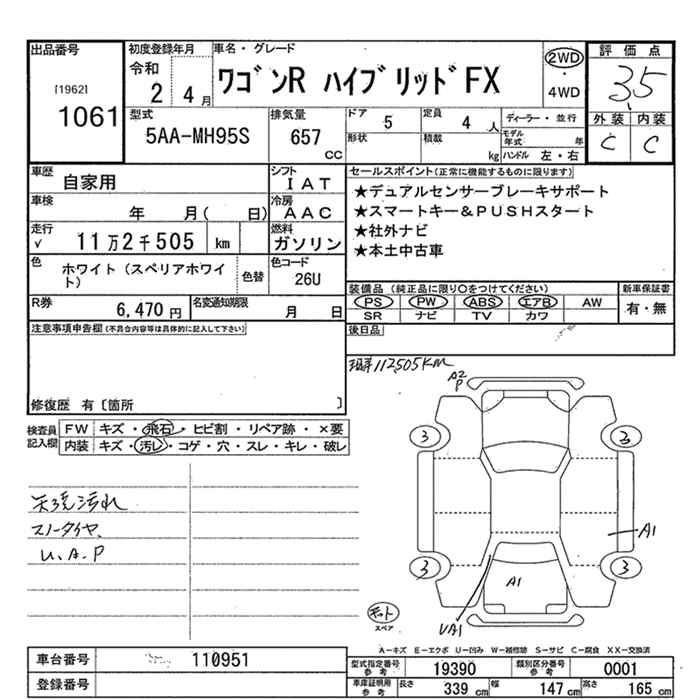 出品番号
[1962]
1061
初度登録年月
令和
2 4月
車名・グレード
ワゴンR ハイブリッドFX
2WD
・
4WD
評価点
3.5
外装 内装
C C
型式
5AA-MH95S
排気量
657
CC
ドア 5
定員 4 人
形状
積載 kg
ディーラー・並行
モデル年式 年
ハンドル 左・右
車歴 自家用
シフト
IAT
車検 年 月( 日)
冷房
AAC
走行
√ 11万2千505 km
燃料
ガソリン
色 ホワイト (スペリアホワイト)
色替
色コード
26U
R券 6,470 円
名変通知期限 月 日
セールスポイント(正常に機能するものに限ります)
★デュアルセンサーブレーキサポート
★スマートキー&PUSHスタート
★社外ナビ
★本土中古車
装備品 (純正品に限り○をつけてください)
新車保証書
PS PW ABS エアB AW
有・無
SR ナビ TV カワ
後日品
注意事項申告欄(不具合内容等は具体的に記入して下さい)
修復歴 有〔箇所 〕
検査員
記入欄
FW キズ・飛石・ヒビ割・リペア跡・×要
内装 キズ・汚レ・コゲ・穴・スレ・キレ・破レ
112505KM
A2
P
3 3
3 3
A1
A1
UA1
天張汚れ
スノータイヤ
U.A.P
スペア
A-キズ E-エクボ U-凹み W-補修跡 S-サビ C-腐食 XX-交換済
車台番号 110951
登録番号
型式指定番号
参考
19390
類別区分番号
参考
0001
車庫証明用
参考
長さ 339 cm 幅 147 cm 高さ 165 cm